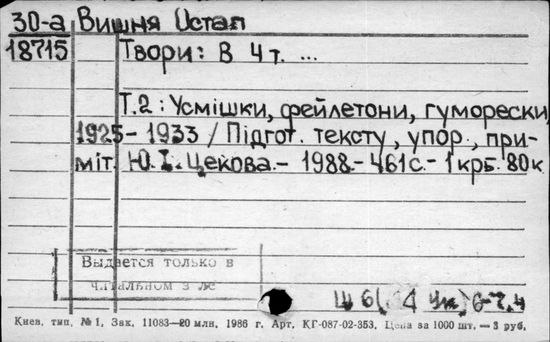 30-а Вишня Остап
18715 Твори: В 4 т. ...
Т.2: Усмішки, фейлетони, гуморески,
1925-1933 / Підгот. тексту, упор., при-
міт. Ю.І. Цекова. – 1988. – 461с. – 1 крб. 80к
Выдается только в
читальном з ле
Киев. тип. № 1. Зак. 11083—20 млн. 1986 г. Арт. КГ-087-02-353. Цена за 1000 шт. — 3 руб.